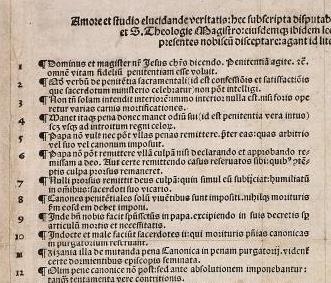 Amore et studio elucidande veritatis: hec subscripta disputab
et S. Theologie Magistro: eiusdem ibidem lec
presentes nobiscū disceptare: agant id lite
1 ¶ Dominus et magister nr̄ Iesus chr̄s dicendo. Penitentiā agite. ꝛc̄.
omnē vitam fideliū penitentiam esse voluit.
2 ¶ Qd̄ verbū de penitētia sacramentali (id est confessiōis et satisfactiōis
que sacerdotum ministerio celebratur) non pōt intelligi.
3 ¶ Non tn̄ solam intendit interiorē: immo interior nulla est. nisi foris ope
retur varias carnis mortificationes.
4 ¶ Manet itaqꝫ pena donec manet odiū sui (id est penitentia vera intus)
scꝫ vsqꝫ ad introitum regni celoꝝ.
5 ¶ Papa nō vult nec pōt vllas penas remittere. p̄ter eas: quas arbitrio
vel suo vel canonum imposuit.
6 ¶ Papa nō pōt remittere vllā culpā nisi declarando et approbando re
missam a deo. Aut certe remittendo casus reseruatos sibi: quibꝰ ptē
ptis culpa prorsus remaneret.
7 ¶ Nulli prorsus remittit deus culpā: quin simul eū subijciat: humiliatū
in oībus: sacerdoti suo vicario.
8 ¶ Canones penitentiales solū viuētibus sunt impositi. nihilqꝫ morituris
ꝑm eosdē debet imponi.
9 ¶ Inde bn̄ nobis facit spūssctūs in papa. excipiendo in suis decretis sp̄
articulū mortis et necessitatis.
10 ¶ Indocte et male faciūt sacerdotes ij: qui morituris pn̄ias canonicas
in purgatorium reseruant.
11 ¶ Zizania illa de mutanda pena Canonica in penam purgatorij. vident̄
certe dormientibus episcopis seminata.
12 ¶ Olim pene canonice nō post: sed ante absolutionem imponebantur:
tanqꝫ tentamenta vere contritionis.